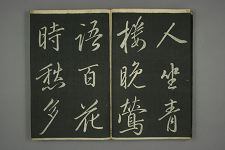 人坐青
楼晚莺
语百花
时愁多